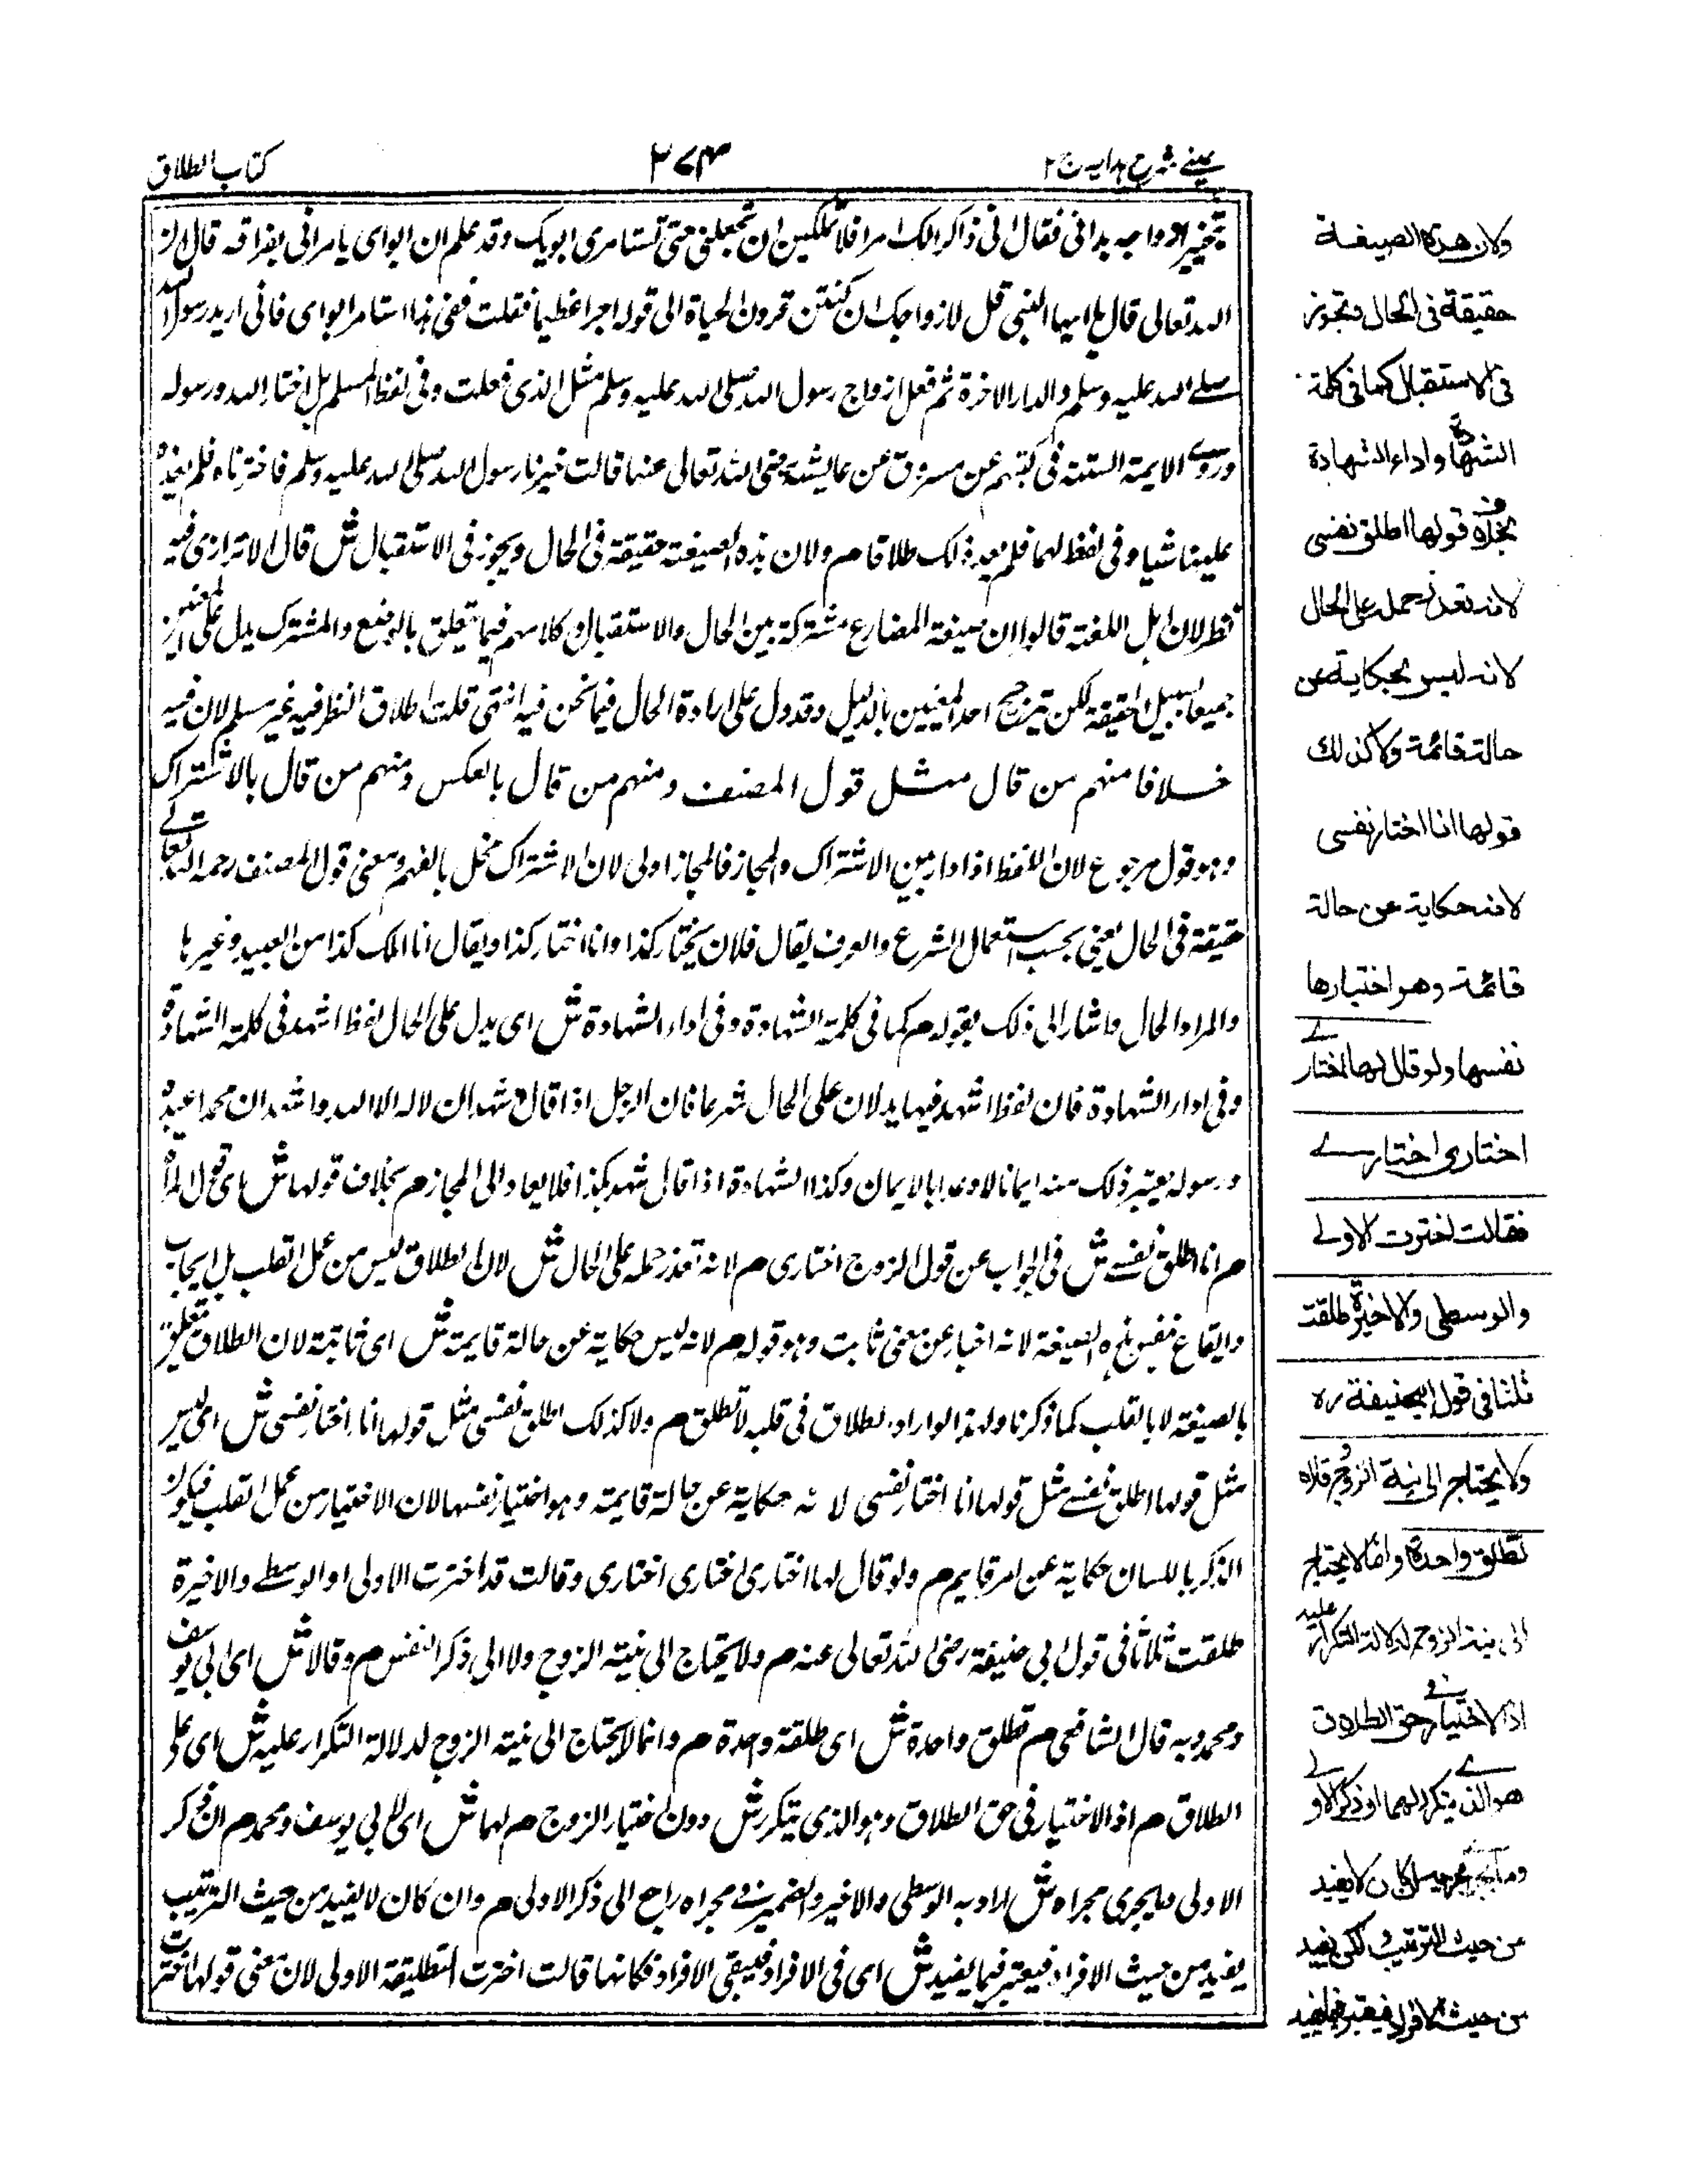 عينى شرح هدايه ج ٢
٣٧٤
كتاب الطلاق
بتخيير ازواجه بدا نى فقال انى ذاكر لك امرا فلا عليك ان تعجلنى حتى تستامرى ابويك وقد علم ان ابواى يامرانى بفراقه قال ان
الله تعالى قال يا ايها النبى قل لازواجك ان كنتن تردن الحياة الى قوله اجرا عظيما فقلت ففى هذا استامر ابواى فانى اريد رسول الله
صلے الله عليه وسلم والدار الاخرة ثم فعل ازواج رسول الله صلى الله عليه وسلم مثل الذى فعلت وفى لفظ لمسلم بل اختار الله ورسوله
وروى الايمة الستة فى كتبهم عن مسروق عن عايشة رضى الله تعالى عنها قالت خيرنا رسول الله صلى الله عليه وسلم فاخترناه فلم يعده
علينا شيا وفى لفظ لهما فلم يعد ذلك طلاقا م ولان هذه الصيغة حقيقة فى الحال ويجوز فى الاستقبال ش قال الاترازى فيه
نظر لان اهل اللغة قالوا ان صيغة المضارع مشتركة بين الحال والاستقبال وكلامهم فيما يتعلق بالوضع والمشترك يدل على المعنيين
جميعا بسبيل الحقيقة لكن يترجح احد المعنيين بالدليل وقد دل على ارادة الحال فيما نحن فيه انتهى قلت اطلاق النظر فيه غير مسلم لان فيه
خلافا منهم من قال مثل قول المصنف ومنهم من قال بالعكس ومنهم من قال بالاشتراك
وهو قول مرجوع لان اللفظ اذا دار بين الاشتراك والمجاز فالمجاز اولى لان الاشتراك مخل بالفهم ومعنى قول المصنف رحمه الله تعالى
حقيقة فى الحال يعنى بحسب استعمال الشرع والعرف يقال فلان يختار كذا وانا اختار كذا ويقال انا املك كذا من العبيد وغيرها
والمراد الحال واشار الى ذلك بقوله م كما فى كلمة الشهادة وفى اداء الشهادة ش اى يدل على الحال لفظ اشهد فى كلمة الشهادة
وفى اداء الشهادة فان لفظ اشهد فيها يدلان على الحال شرعا فان الرجل اذا قال اشهد ان لا اله الا الله واشهد ان محمدا عبده
ورسوله يعتبر ذلك منه ايمانا لا وعدا بالايمان وكذا الشهادة اذا قال شهد بكذا فلا يعاد الى المجاز م بخلاف قولها ش اى قول المرأة
م انا اطلق نفسے ش فى الجواب عن قول الزوج اختارى م لانه تعذر حمله على الحال ش لان الطلاق ليس من عمل القلب بل ايجاب
وايقاع بنفس هذه الصيغة لانه اخبار عن معنى ثابت وهو قوله م لانه ليس حكاية عن حالة قايمة ش اى ثابتة لان الطلاق يتعلق
بالصيغة لا بالقلب كما ذكرنا ولهذا لو اراد الطلاق فى قلبه لا تطلق م ولا كذلك اطلق نفسى مثل قولها انا اختار نفسى ش اى ليس
مثل قولها اطلق نفسے مثل قولها انا اختار نفسى لانه حكاية عن حالة قايمة وهو اختيار نفسها لان الاختيار من عمل القلب فيكون
الذكر باللسان حكاية عن امر قايم م ولو قال لها اختارى اختارى اختارى وقالت قد اخترت الاولى او الوسطے والاخيرة
طلقت ثلاثا فى قول ابى حنيفة رضى الله تعالى عنه م ولا يحتاج الى نية الزوج ولا الى ذكر النفس م وقالا ش اى ابى يوسف
ومحمد وبه قال الشافعى م تطلق واحدة ش اى طلقة واحدة م وانما لا يحتاج الى نية الزوج لدلالة التكرار عليه ش اى على
الطلاق م اذ الاختيار فى حق الطلاق وهو الذى يتكرر ش دون اختيار الزوج م لهما ش اى لابى يوسف ومحمد م ان ذكر
الاولى وما يجرى مجراه ش اراد به الوسطى والاخير والضمير فى مجراه راجع الى ذكر الاولى م وان كان لا يفيد من حيث الترتيب
يفيد من حيث الافراد فيعتبر فيما يفيد ش اى فى الافراد فيبقى الافراد فكانها قالت اخترت التطليقة الاولى لان معنى قولها اخترت
ولان هذه الصيغة
حقيقة فى الحال وتجوز
فى الاستقبال كما فى كلمة
الشهادة واداء الشهادة
بخلاف قولها اطلق نفسى
لانه تعذر حمله على الحال
لانه ليس بحكاية عن
حالة قائمة ولا كذلك
قولها انا اختار نفسى
لانه حكاية عن حالة
قائمة وهو اختيارها
نفسها ولو قال لها اختارى
اختارى اختارے
فقالت اخترت الاولے
والوسطى والاخيرة طلقت
ثلثا فى قول ابيحنيفة ره
ولا يحتاج الى نية الزوج وقالا
تطلق واحدة وانما لا يحتاج
الى نية الزوج لدلالة التكرار عليه
اذ الاختيار فى حق الطلاق
هو الذى يتكرر لهما ان ذكر الاولى
وما يجرى مجراه ان كان لا يفيد
من حيث الترتيب لكن يفيد
من حيث الافراد فيعتبر فيما يفيد